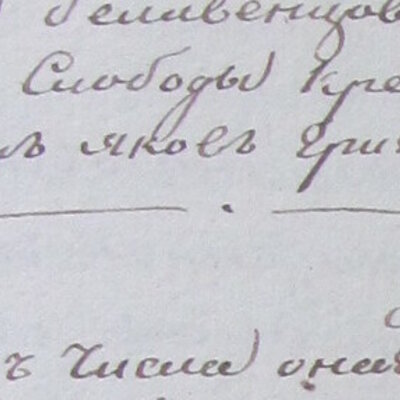 беливенцов
Слободы кре
яковъ гри
ъ Числа она